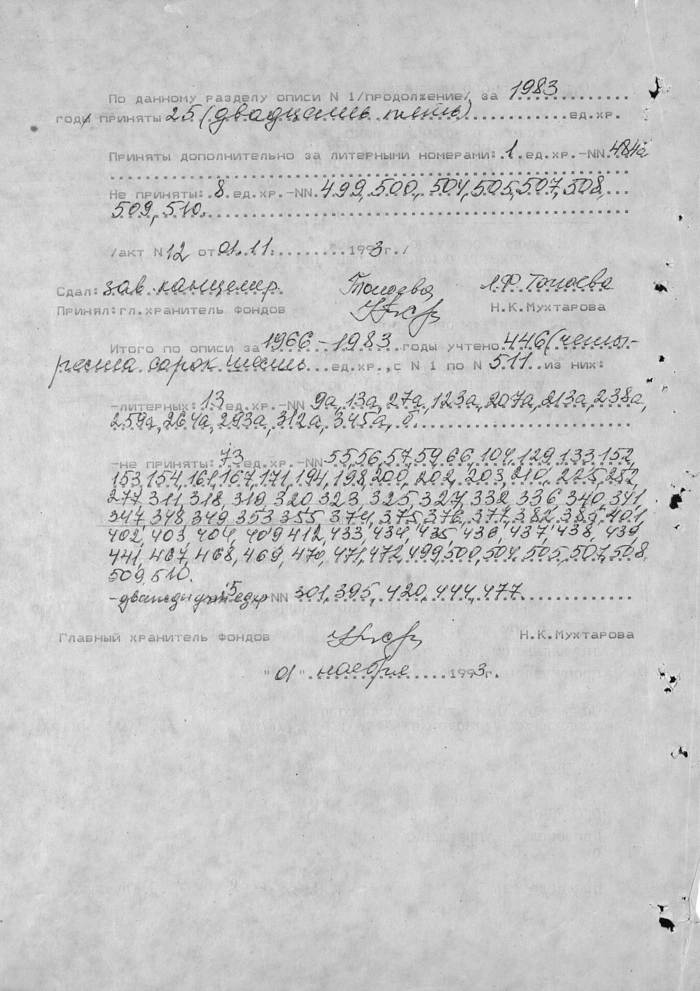 По данному разделу описи N 1/продолжение/ за 1983
год приняты 25 (двадцать пять) ед.хр.
Приняты дополнительно за литерными номерами: 1 ед.хр.-NN 484а
Не приняты: 8 ед.хр.-NN 499, 500, 504, 505, 507, 508,
509, 510.
/акт N 12 от 01.11. 1993г./
Сдал: зав. канцеляр. Л.Ф. Топаева
Принял: гл.хранитель фондов Н.К.Мухтарова
Итого по описи за 1966-1983 годы учтено 446 (четы-
реста сорок шесть ед.хр., с N 1 по N 511 из них:
-литерных: 13 ед.хр.-NN 9а, 13а, 27а, 123а, 207а, 213а, 238а,
259а, 264а, 293а, 312а, 345а, б
-не приняты: 73 ед.хр.-NN 55, 56, 57, 59, 66, 104, 129, 133, 152,
153, 154, 161, 167, 171, 194, 198, 200, 202, 203, 210, 225, 252,
277, 311, 318, 319, 320, 323, 325, 327, 332, 336, 340, 341,
347, 348, 349, 353, 355, 374, 375, 376, 377, 382, 385, 401,
402, 403, 404, 409, 412, 433, 434, 435, 436, 437, 438, 439,
441, 467, 468, 469, 470, 471, 472, 499, 500, 504, 505, 507, 508,
509, 510.
-дважды 5 едхр NN 301, 395, 420, 444, 477
Главный хранитель фондов Н.К.Мухтарова
"01" ноября 1993г.